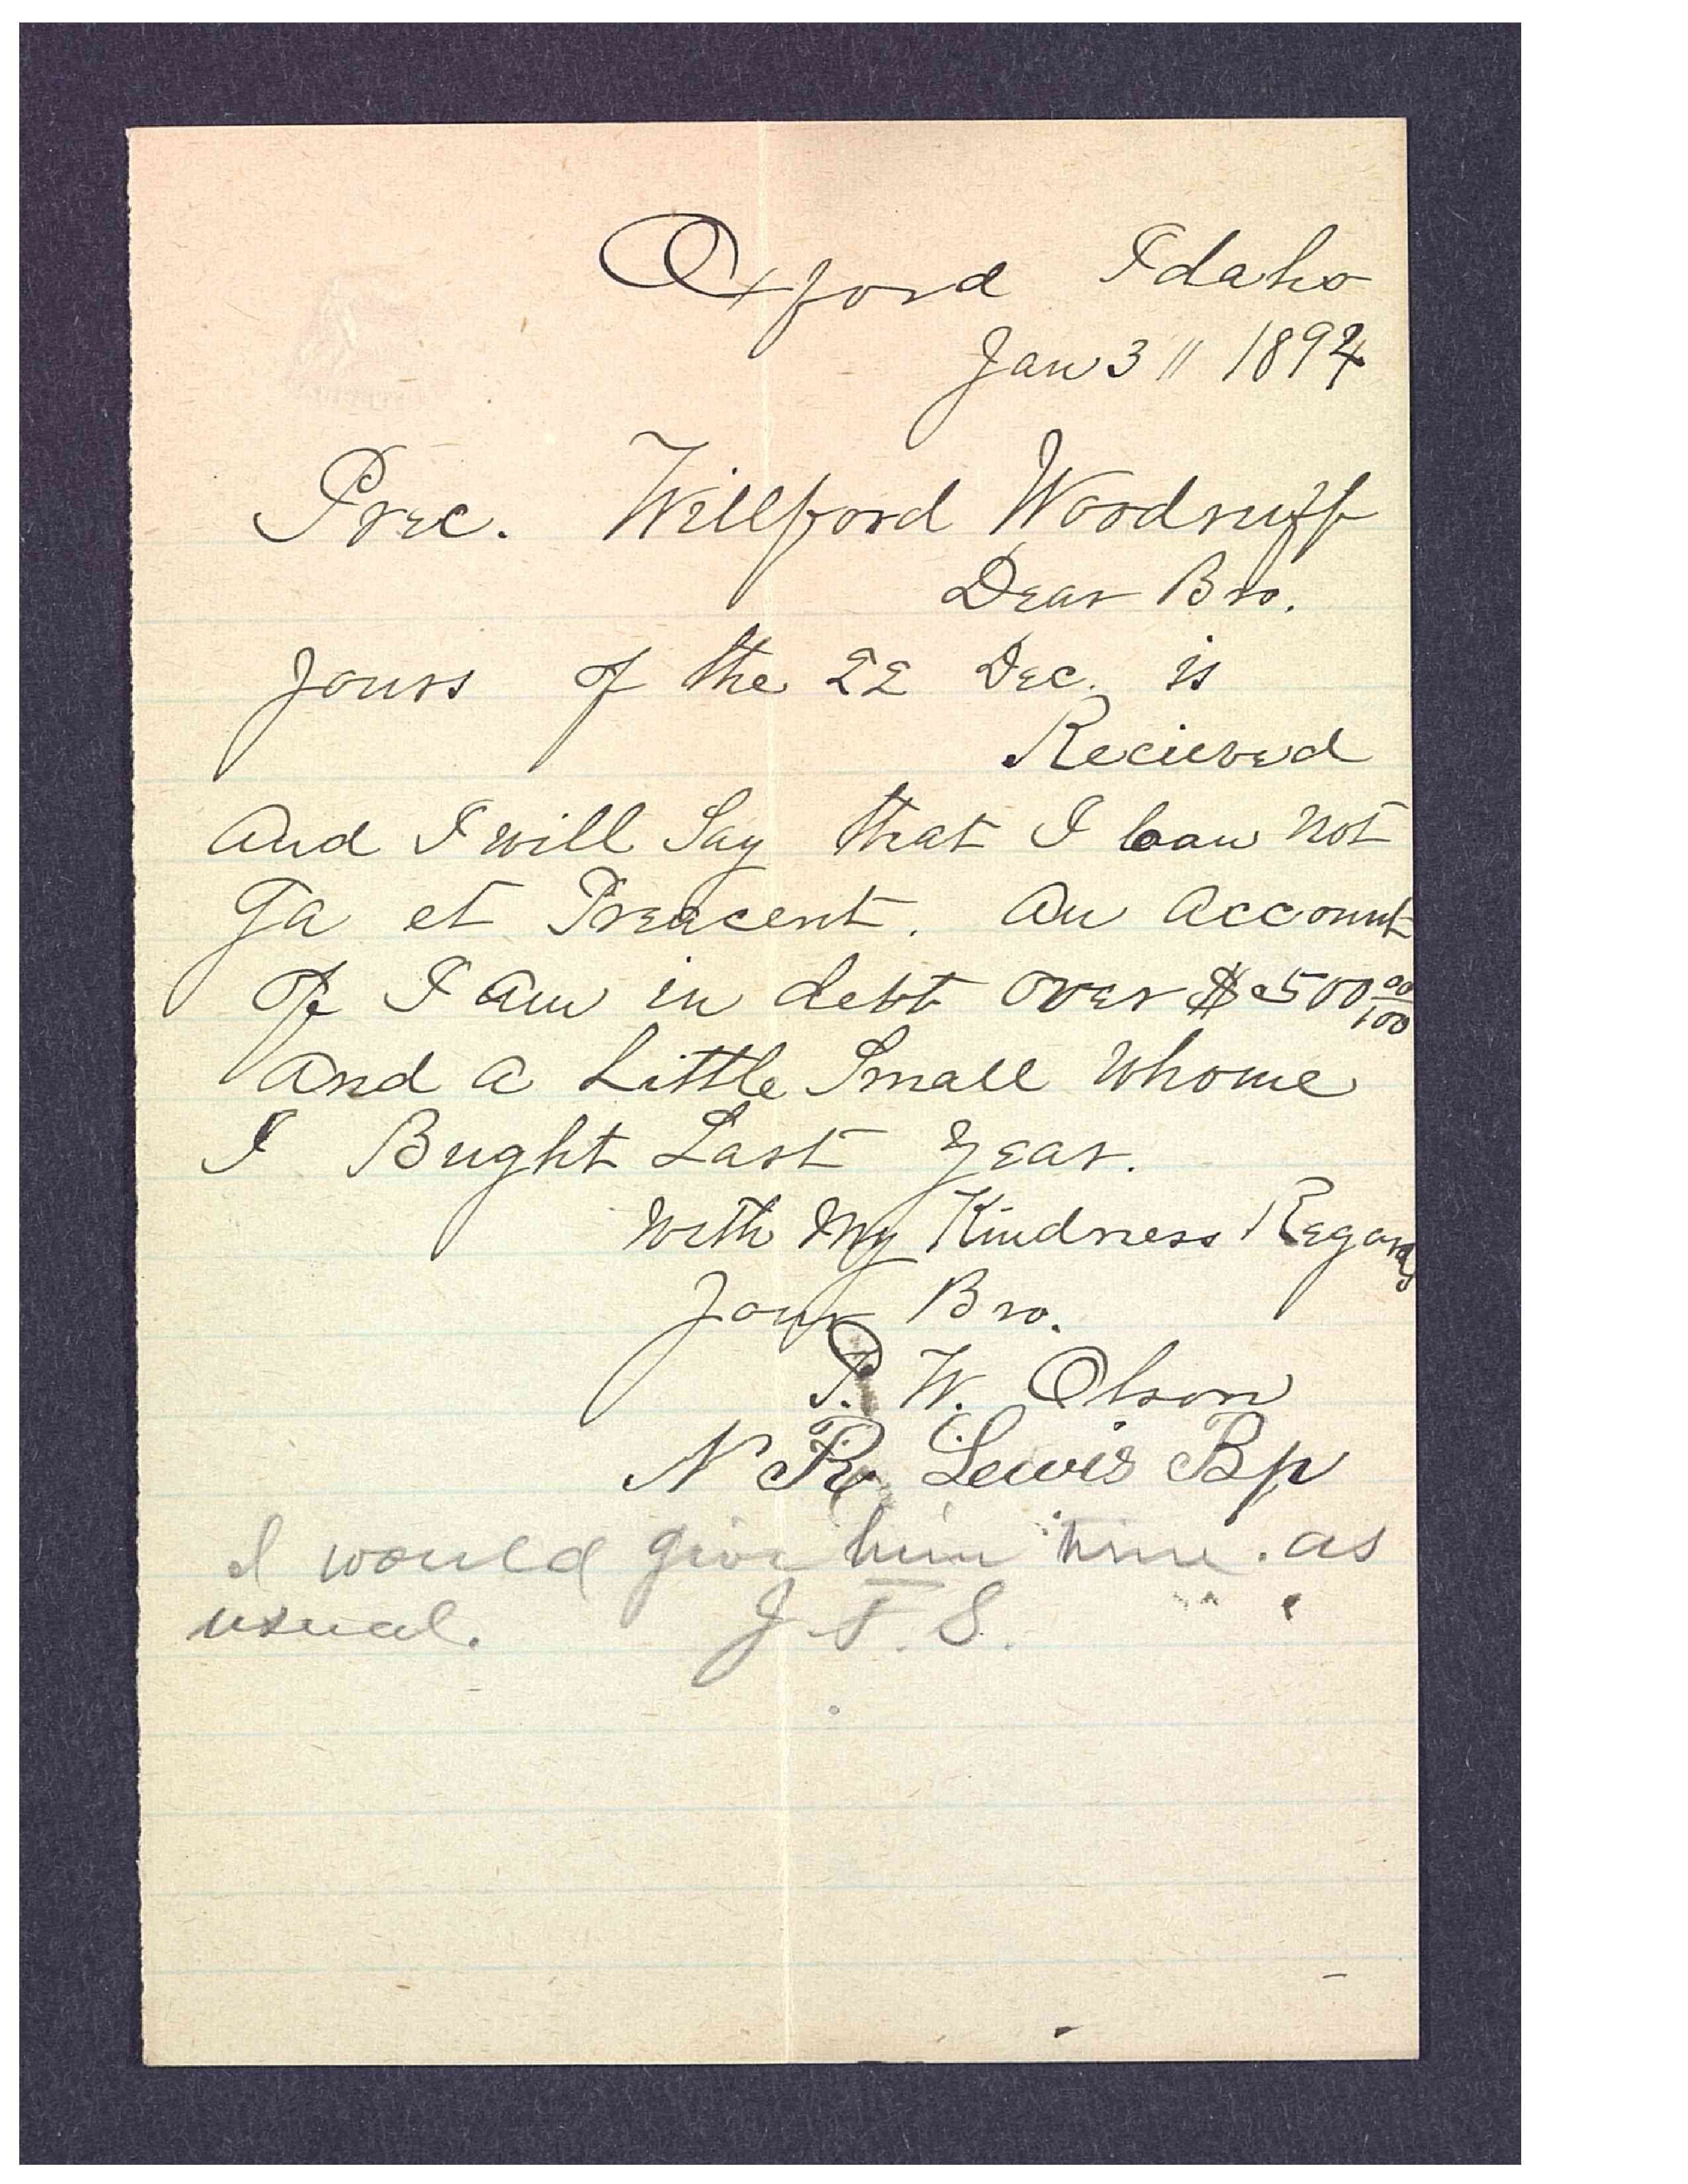 Oxford Idaho
Jan 3 // 1894
Prec. Willford Woodruff
Dear Bro.
Yours of the 22 Dec. is
Recieved
And I will Say that I Can Not
Ga et Preacent. An Account
Of I Am in debt over $500 00/100
And a Little Small Whome
I Bught Last Year.
With My Kindness Regards
Your Bro.
P. W. Olson
N R Lewis Bp
I would give him time. as
usual. J. F. S.